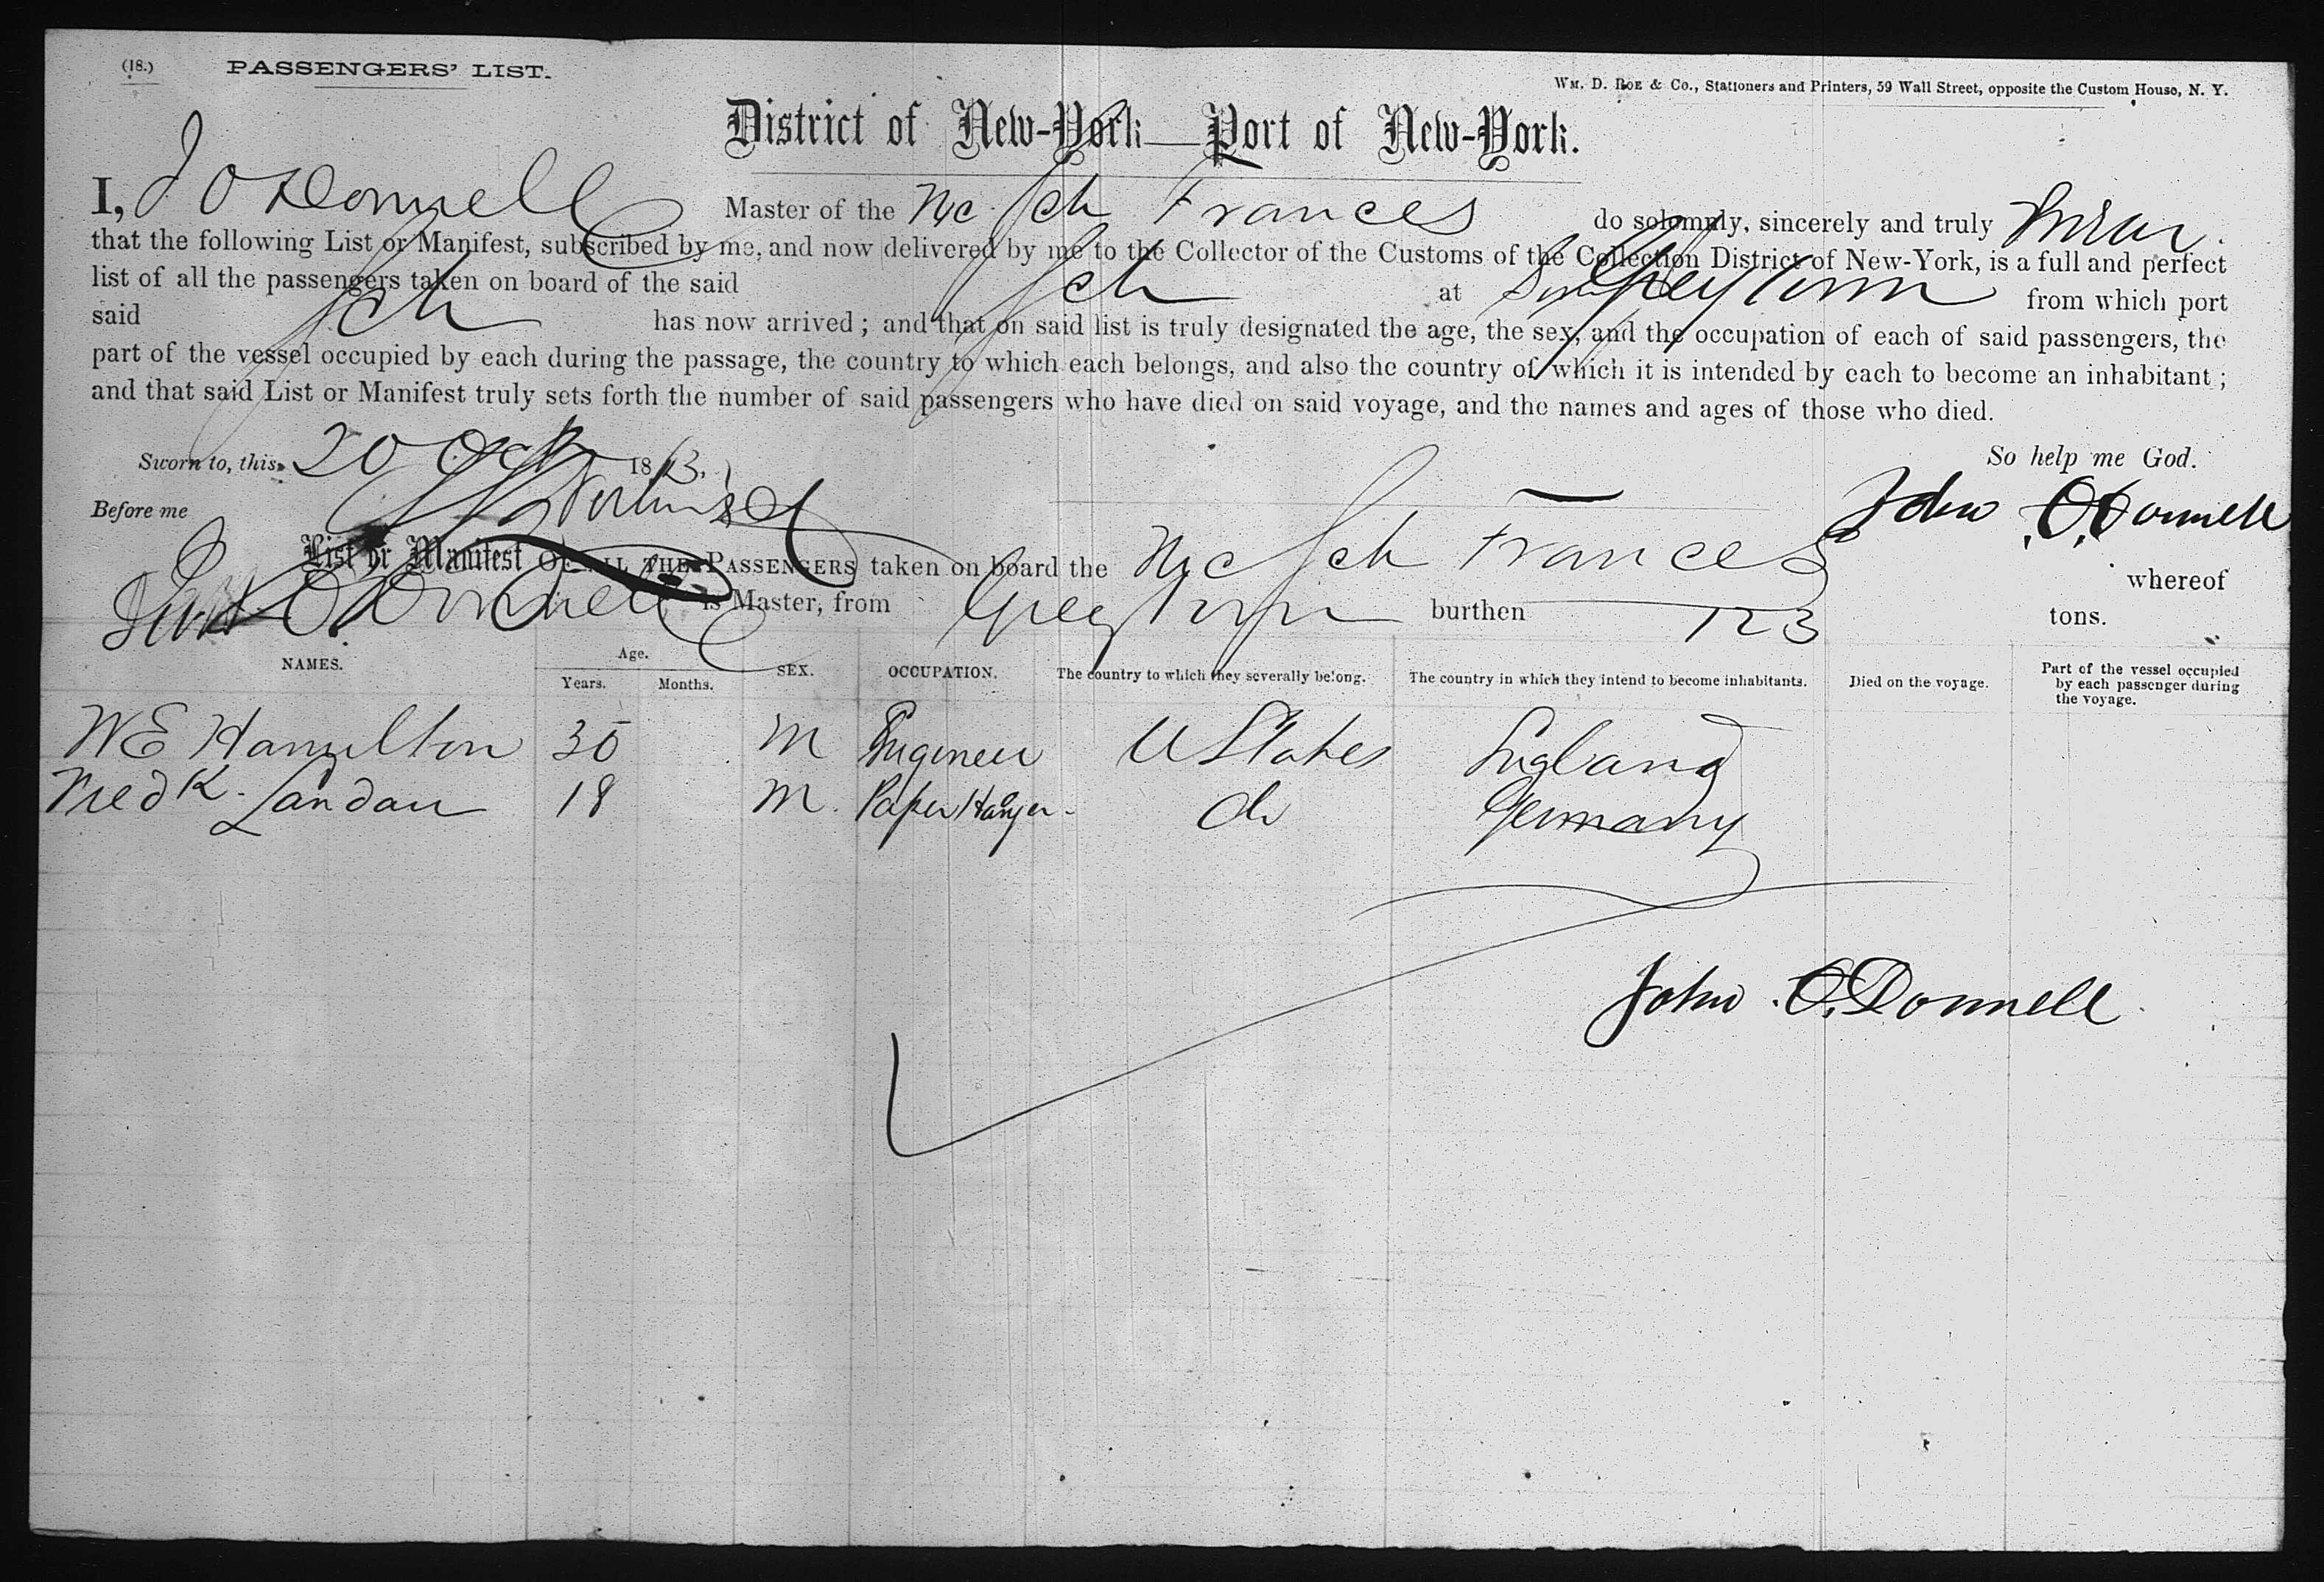 (18.) PASSENGERS' LIST.
Wm. D. Roe & Co., Stationers and Printers, 59 Wall Street, opposite the Custom House, N. Y.
District of New-York—Port of New-York.
I, J O Donnell Master of the Nic Sch Frances do solemnly, sincerely and truly swear
that the following List or Manifest, subscribed by me, and now delivered by me to the Collector of the Customs of the Collection District of New-York, is a full and perfect
list of all the passengers taken on board of the said Sch at Greytown from which port
said Sch has now arrived; and that on said list is truly designated the age, the sex, and the occupation of each of said passengers, the
part of the vessel occupied by each during the passage, the country to which each belongs, and also the country of which it is intended by each to become an inhabitant;
and that said List or Manifest truly sets forth the number of said passengers who have died on said voyage, and the names and ages of those who died.
Sworn to, this 20 Oct 1863. So help me God.
Before me John O.Donnell
List or Manifest OF ALL THE PASSENGERS taken on board the Nic Sch Frances whereof
John O Donnell is Master, from Greytown burthen 123 tons.
NAMES. Age. Years. Months. SEX. OCCUPATION. The country to which they severally belong. The country in which they intend to become inhabitants. Died on the voyage. Part of the vessel occupied by each passenger during the voyage.
WE Hamilton 35 M Engineer U States England
Fred K. Landau 18 M. Paper Hanger- do Germany
John O.Donnell